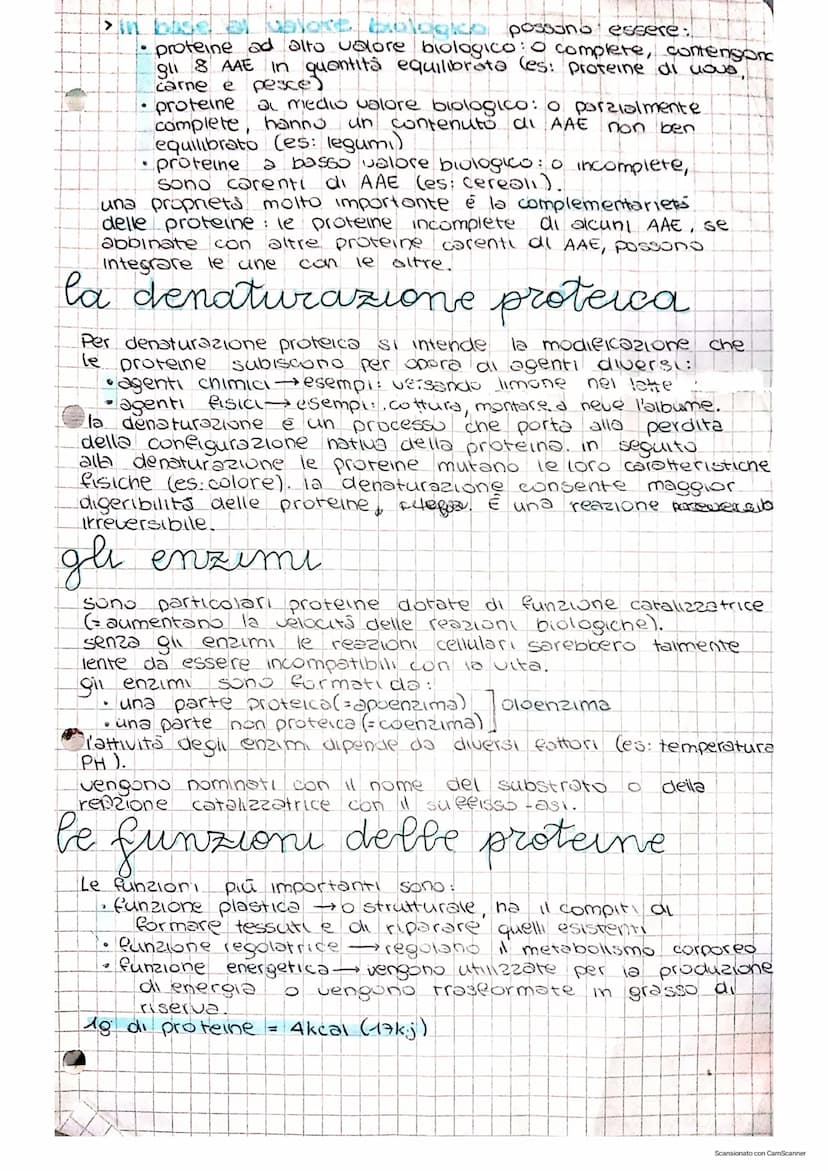 > in base al valore biologico possono essere:
• proteine ad alto valore biologico: o complete, contengono
gli 8 AAE in quantità equilibrata (es: proteine di uova,
carne e pesce)
• proteine al medio valore biologico: o parzialmente
complete, hanno un contenuto di AAE non ben
equilibrato (es: legumi)
• proteine a basso valore biologico: o incomplete,
sono carenti di AAE (es: cereali).
una proprietà molto importante é la complementarietà
delle proteine: le proteine incomplete di alcuni AAE, se
abbinate con altre proteine carenti di AAE, possono
integrare le une con le altre.
la denaturazione proteica
Per denaturazione proteica si intende la modificazione che
le proteine subiscono per opera di agenti diversi:
• agenti chimici → esempi: versando limone nel latte
• agenti fisici → esempi: cottura, montare a neve l'albume.
la denaturazione é un processo che porta alla perdita
della configurazione nativa della proteina. in seguito
alla denaturazione le proteine mutano le loro caratteristiche
fisiche (es: colore). la denaturazione consente maggior
digeribilità delle proteine, É una reazione
irreversibile.
gli enzimi
sono particolari proteine dotate di funzione catalizzatrice
(= aumentano la velocità delle reazioni biologiche).
senza gli enzimi le reazioni cellulari sarebbero talmente
lente da essere incompatibili con la vita.
gli enzimi sono formati da:
• una parte proteica (= apoenzima) ] oloenzima
• una parte non proteica (= coenzima)
l'attività degli enzimi dipende da diversi fattori (es: temperatura
PH).
vengono nominati con il nome del substrato o della
reazione catalizzatrice con il suffisso -asi.
le funzioni delle proteine
Le funzioni più importanti sono:
• funzione plastica → o strutturale, ha il compiti di
formare tessuti e di riparare quelli esistenti
• funzione regolatrice → regolano il metabolismo corporeo
• funzione energetica → vengono utilizzate per la produzione
di energia o vengono trasformate in grasso di
riserva.
1g di proteine = 4kcal (17kj)
Scansionato con CamScanner